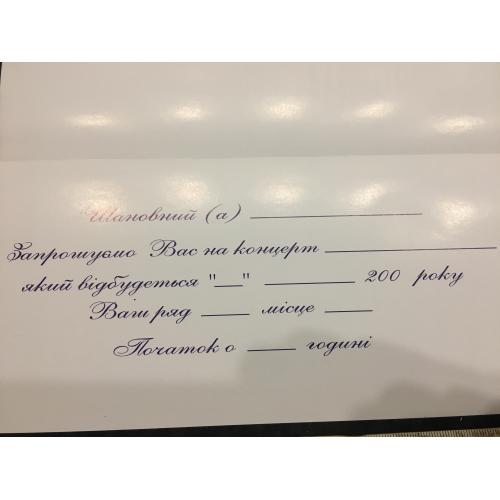 Шановний (а) ____________
Запрошуємо Вас на концерт ____________
який відбудеться "__" ________ 200 року
Ваш ряд ____ місце ____
Початок о ____ годині